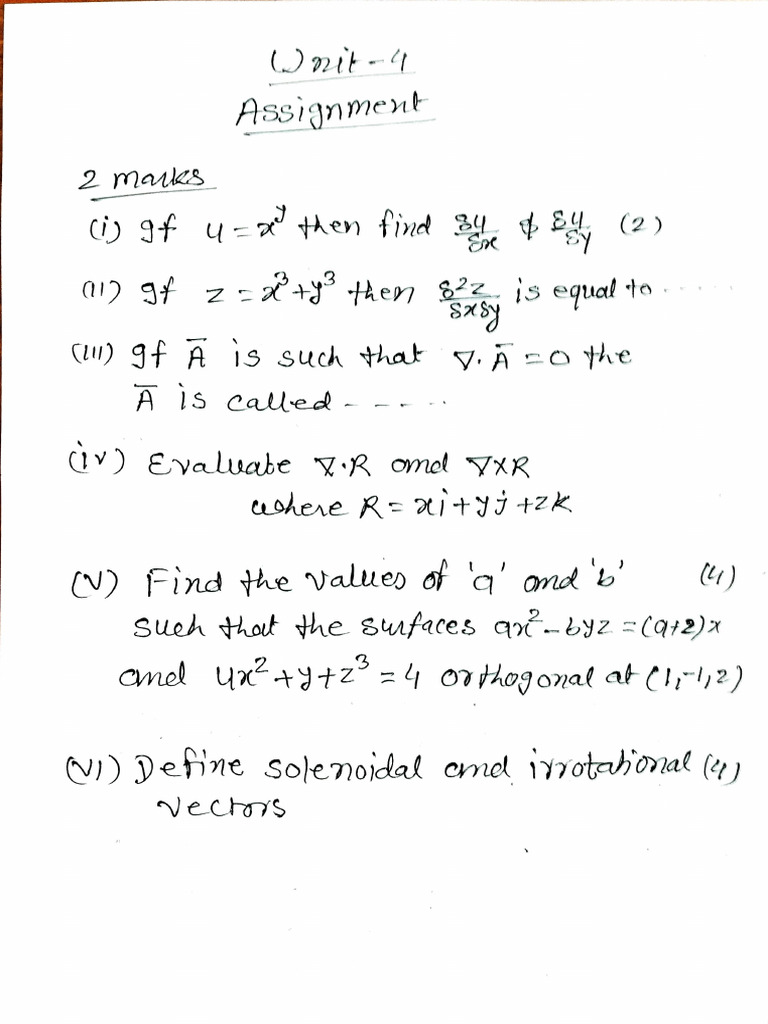 Unit-4
Assignment
2 marks
(i) If u = x^y then find δu/δx & δu/δy (2)
(ii) If z = x³+y³ then δ²z/δxδy is equal to ......
(iii) If A̅ is such that ∇.A̅ = 0 the
A̅ is called -----.
(iv) Evaluate ∇.R and ∇×R
where R = xi+yj+zk
(v) Find the values of 'a' and 'b' (4)
such that the surfaces ax²-byz = (a+2)x
and 4x²+y+z³ = 4 orthogonal at (1,-1,2)
(vi) Define solenoidal and irrotational (4)
vectors